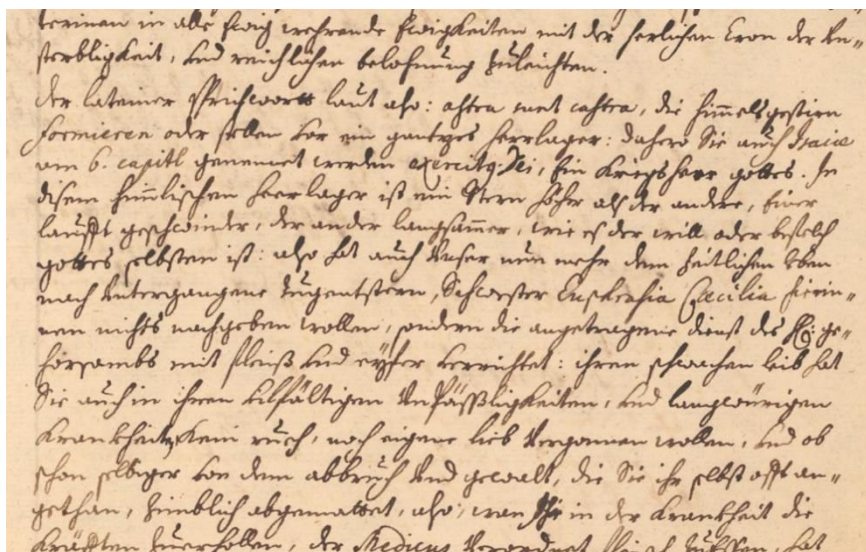 terinen in alle Ewig wehrende Ewigkeiten mit der herlichen Cron der Un=
sterbligkeit, und reichlichen belohnung zuleichten.
Der lateiner Sprichwortt laut also: astra met castra, die himmelsgestirn
Formieren oder stellen vor ein gantzes heerlager: dahero Sie auch Isaiæ
am 6. capitl genennet werden exercitq: Dei, Ein Kriegsheer gottes. In
disem himlischen heerlager ist ein Stern höher als der andere, Einer
laufft geschwinder, der ander langsammer, wie es der will oder befelch
gottes selbsten ist: also hat auch Unser nun mehr dem zeitlichen leben
nach Untergangene Tugentstern, Schwester Euphrosia Cæcilia hierin=
nen nichts nachgeben wollen, sondern die angetragene dienst des H: ge=
horsambs mit fleiß und eyfer verrichtet: ihren schwachen leib hat
Sie auch in ihren vilfältigen Unpäßligkeiten, und langwürigen
Krankheiten kein ruch, noch eigene lieb Vergonnen wollen, und ob
schon selbiger von dem abbruch Und gewalt, die Sie ihr selbst offt an=
gethan, zimblich abgemattet, also, wan Ihr in der Krankheit die
Kräfften zuerhollen, der Medicus Verordnet fleisch zuessen, hat